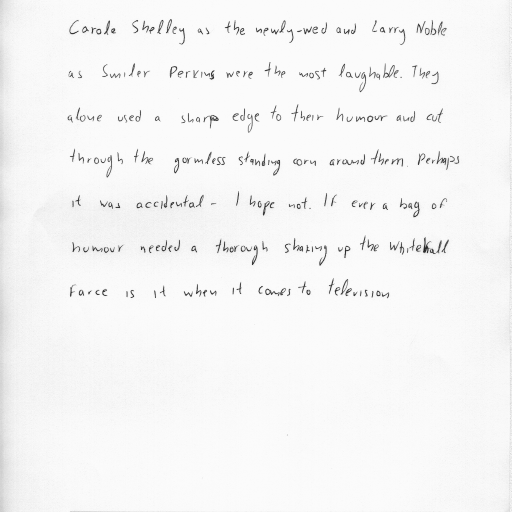 Carole Shelley as the newly-wed and Larry Noble
as Smiler Perkins were the most laughable. They
alone used a sharp edge to their humour and cut
through the gormless standing corn around them. Perhaps
it was accidental - I hope not. If ever a bag of
humour needed a thorough shaking up the Whitehall
Farce is it when it comes to television